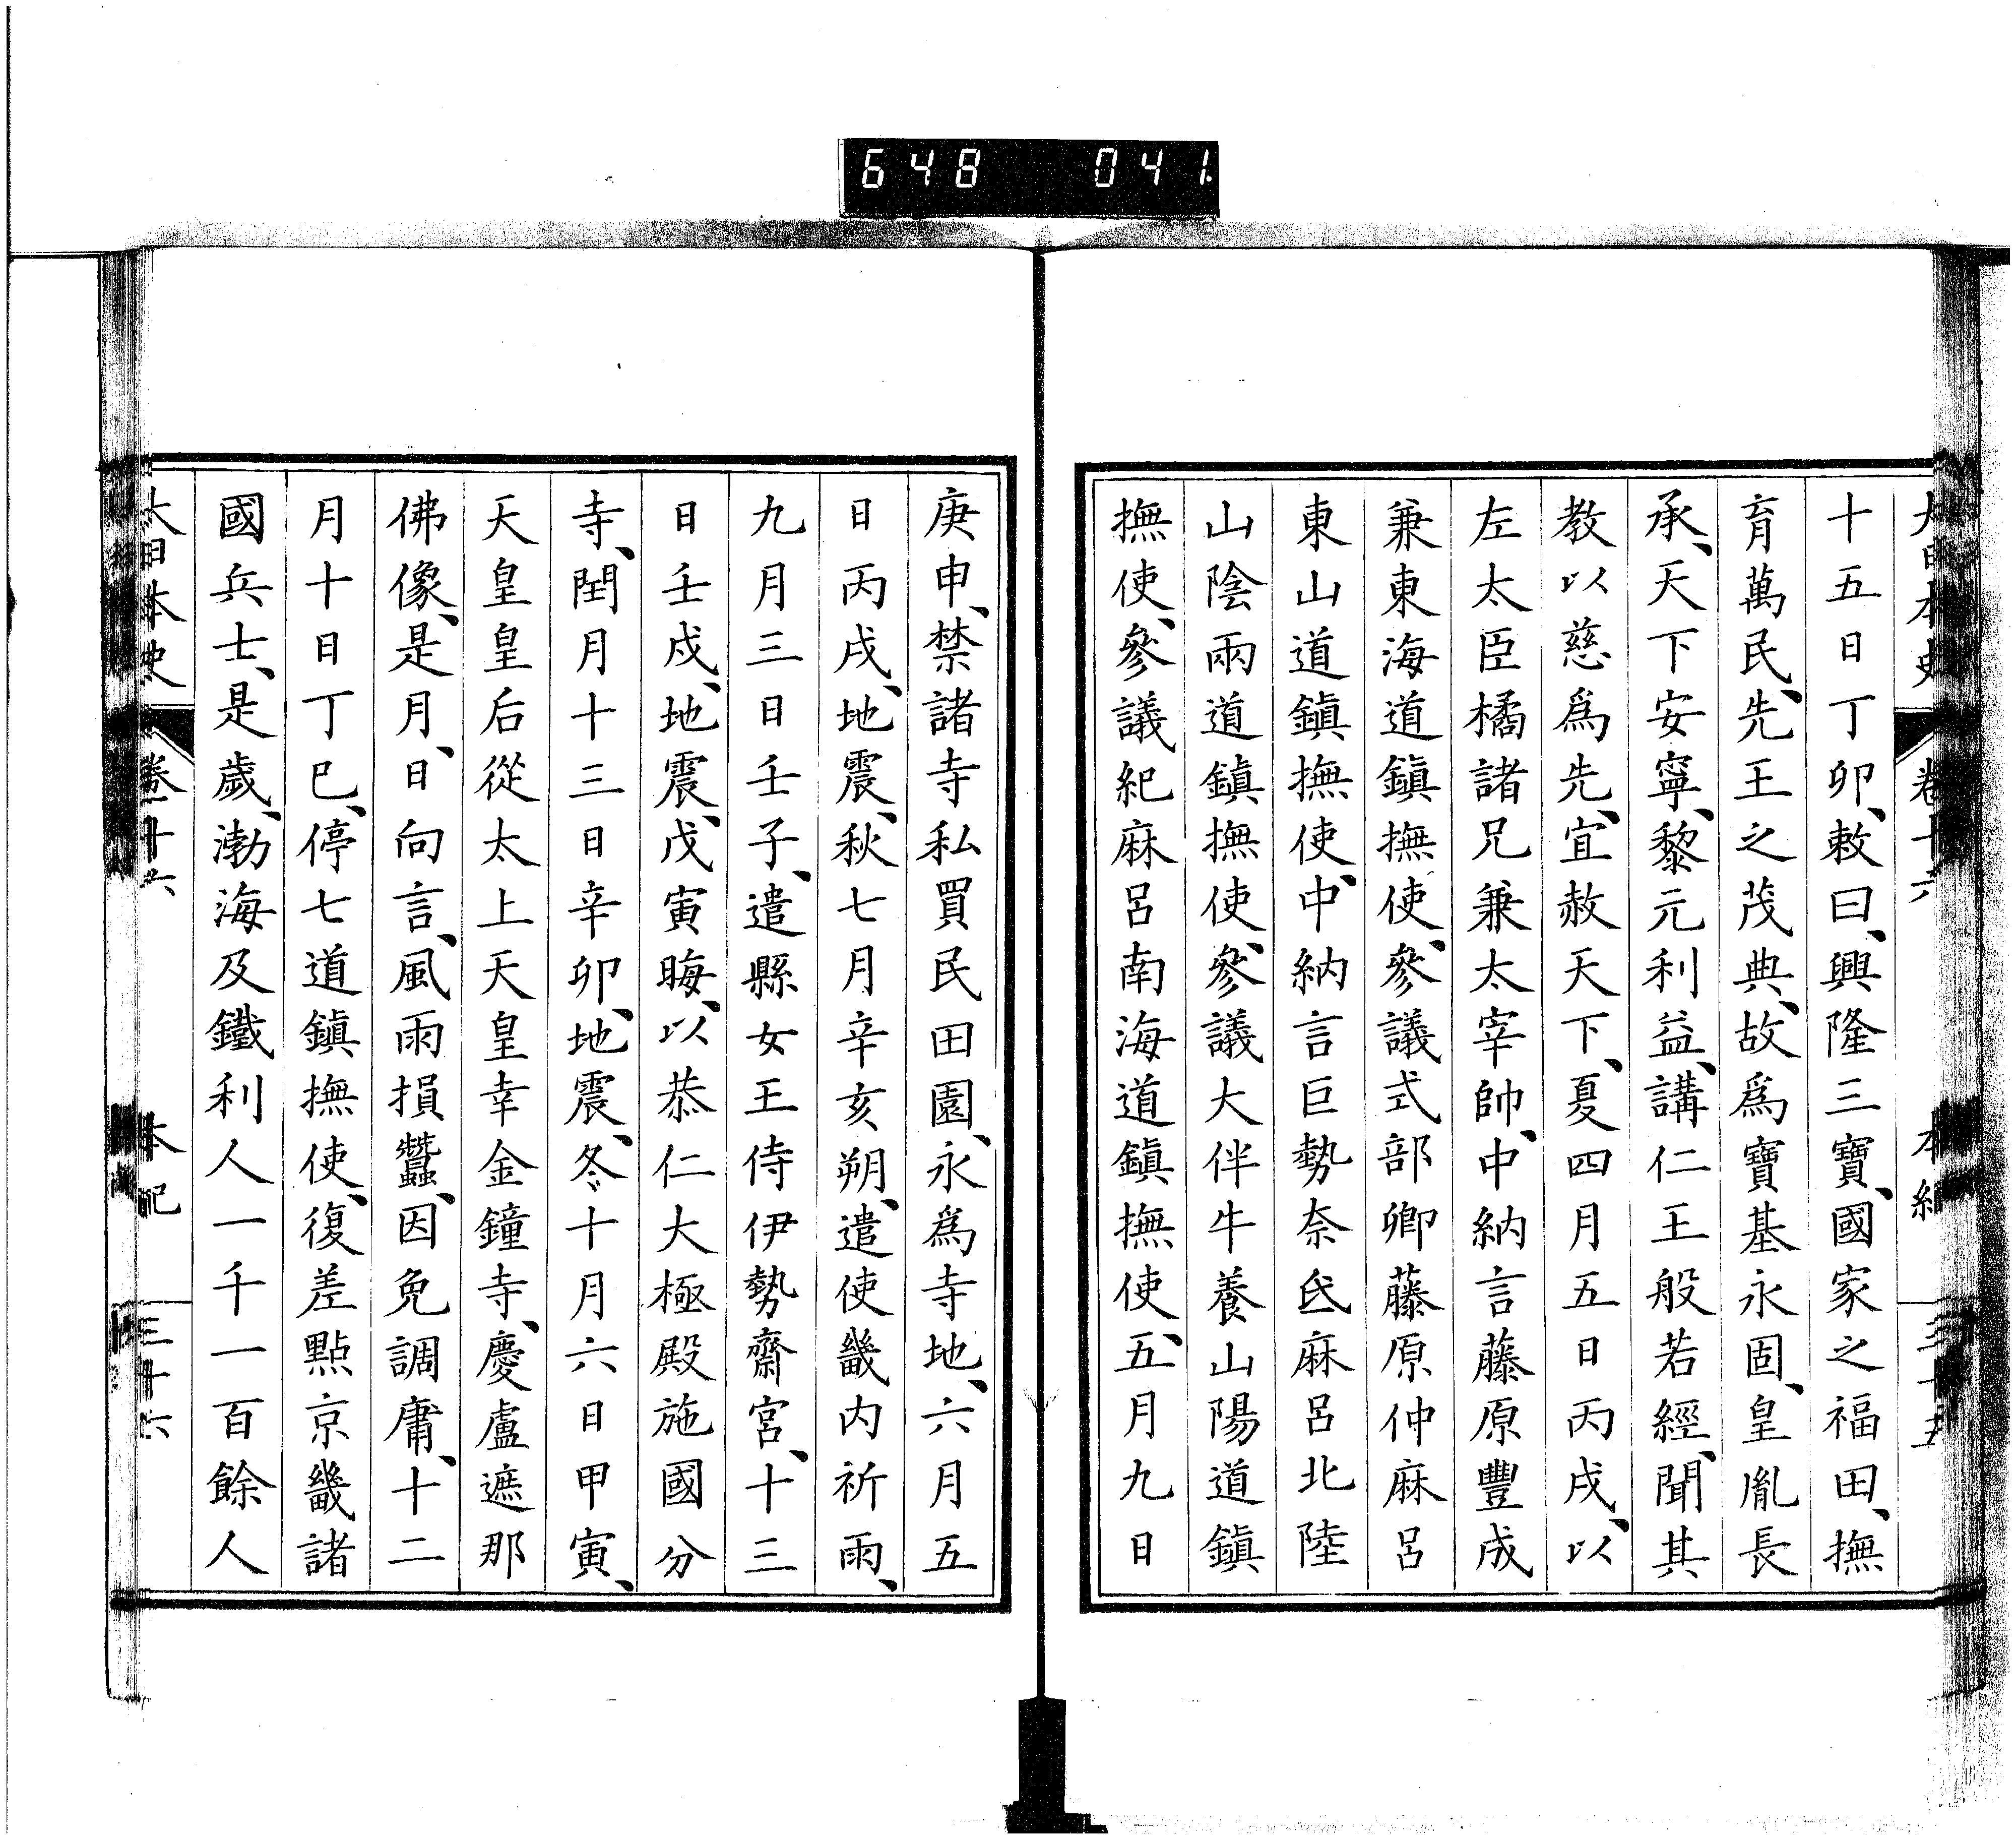 648 041
大日本史 卷十六 本紀 三十五
十五日丁卯、敕曰、興隆三寶、國家之福田、撫
育萬民、先王之茂典、故爲寶基永固、皇胤長
承、天下安寧、黎元利益、講仁王般若經、聞其
教以慈爲先、宜赦天下、夏四月五日丙戌、以
左大臣橘諸兄兼太宰帥、中納言藤原豐成
兼東海道鎭撫使、參議式部卿藤原仲麻呂
東山道鎭撫使、中納言巨勢奈氐麻呂北陸
山陰兩道鎭撫使、參議大伴牛養山陽道鎭
撫使、參議紀麻呂南海道鎭撫使、五月九日
庚申、禁諸寺私買民田園、永爲寺地、六月五
日丙戌、地震、秋七月辛亥朔、遣使畿内祈雨、
九月三日壬子、遣縣女王侍伊勢齋宮、十三
日壬戌、地震、戊寅晦、以恭仁大極殿施國分
寺、閏月十三日辛卯、地震、冬十月六日甲寅、
天皇皇后從太上天皇幸金鐘寺、慶盧遮那
佛像、是月、日向言、風雨損蠶、因免調庸、十二
月十日丁巳、停七道鎭撫使、復差點京畿諸
國兵士、是歳、渤海及鐵利人一千一百餘人
大日本史 卷十六 本紀 三十六